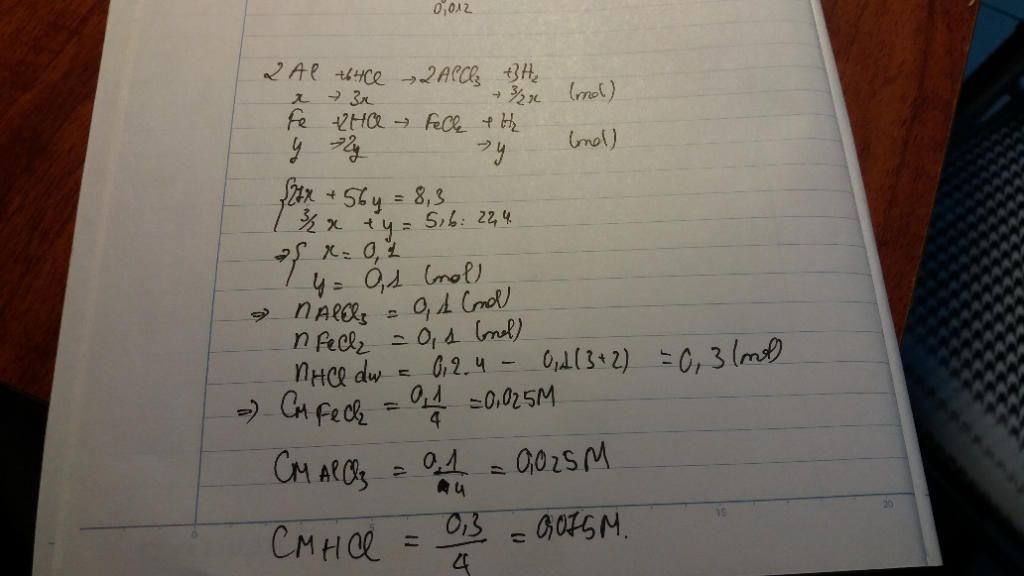 0,012
2Al + 6HCl → 2AlCl₃ + 3H₂
x → 3x → 3/2x (mol)
Fe + 2HCl → FeCl₂ + H₂
y → 2y → y (mol)
{ 27x + 56y = 8,3
3/2 x + y = 5,6 : 22,4
⇒ { x = 0,1
y = 0,1 (mol)
⇒ nAlCl₃ = 0,1 (mol)
nFeCl₂ = 0,1 (mol)
nHCl dư = 0,2.4 - 0,1(3+2) = 0,3 (mol)
⇒ CM FeCl₂ = 0,1/4 = 0,025M
CM AlCl₃ = 0,1/4 = 0,025M
CM HCl = 0,3/4 = 0,075M.
0 15 20